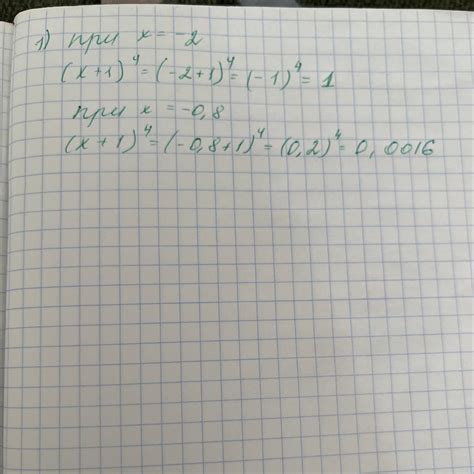 1) при x = -2
(x+1)⁴ = (-2+1)⁴ = (-1)⁴ = 1
при x = -0,8
(x+1)⁴ = (-0,8+1)⁴ = (0,2)⁴ = 0,0016